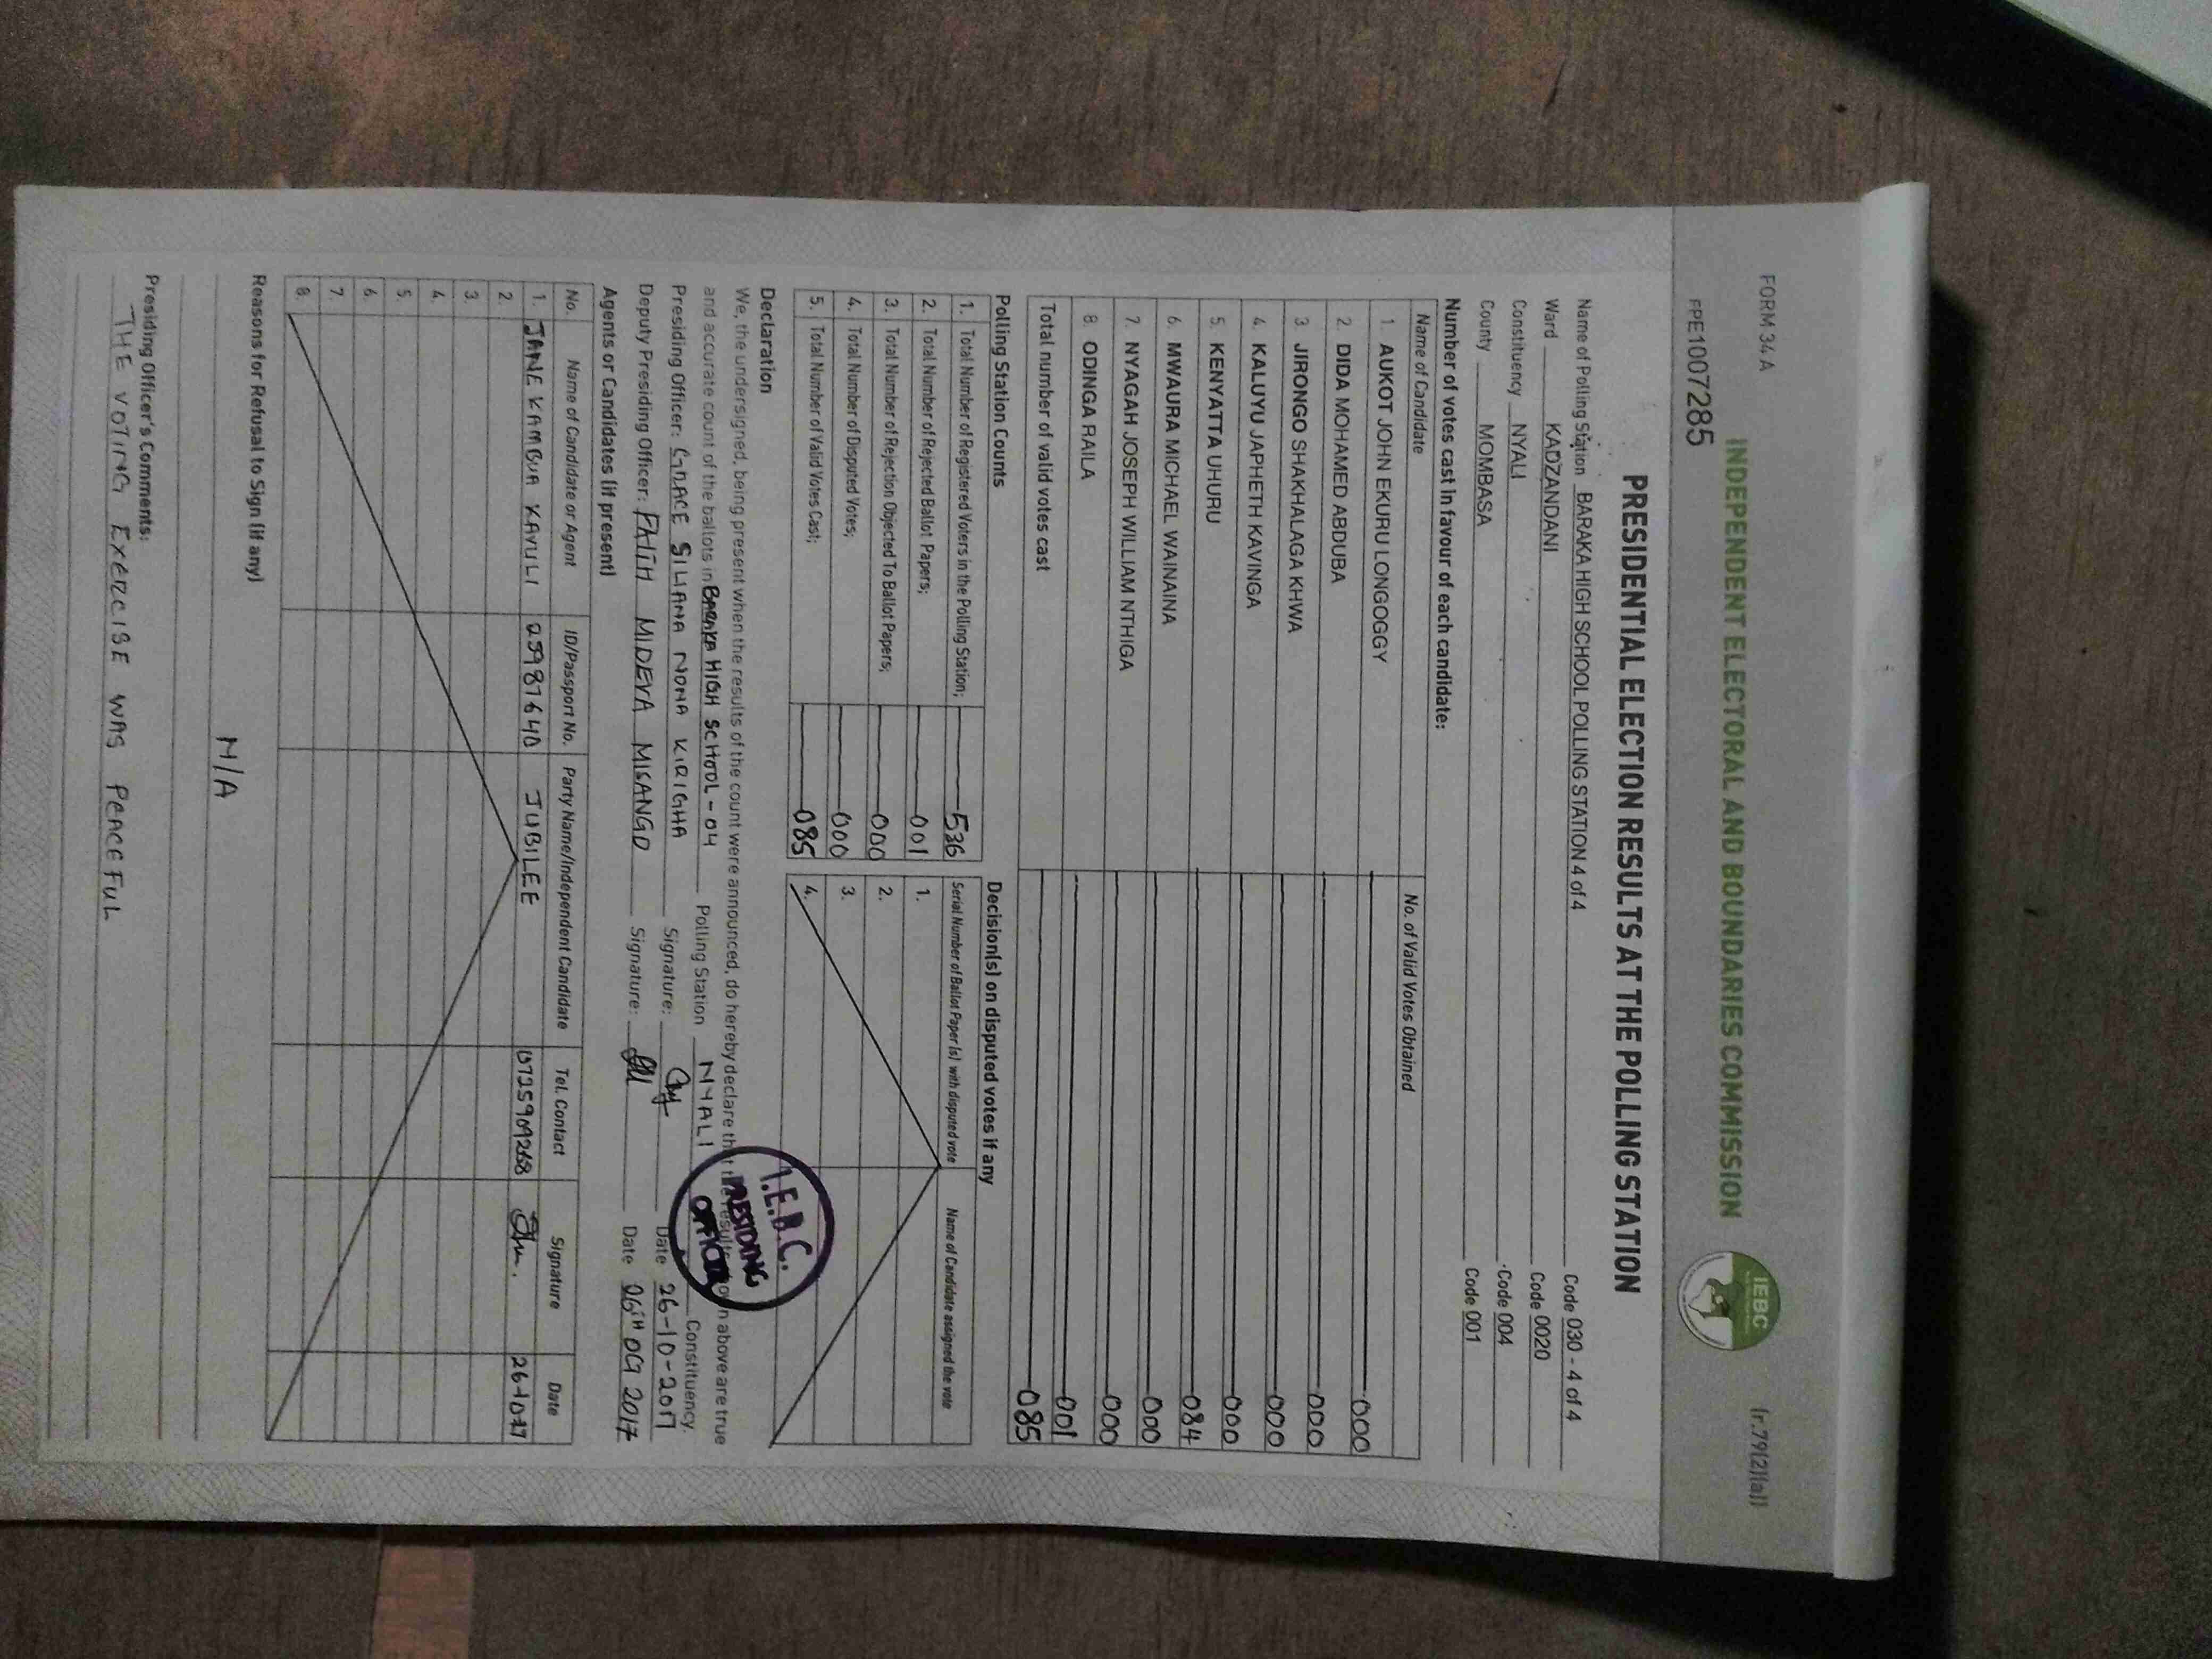 FORM 34 A
(r.79(2)(a))
INDEPENDENT ELECTORAL AND BOUNDARIES COMMISSION
IEBC
PPE1007285
PRESIDENTIAL ELECTION RESULTS AT THE POLLING STATION
Name of Polling Station BARAKA HIGH SCHOOL POLLING STATION 4 of 4 Code 030 - 4 of 4
Ward KADZANDANI Code 0020
Constituency NYALI Code 004
County MOMBASA Code 001
Number of votes cast in favour of each candidate:
Name of Candidate No. of Valid Votes Obtained
1. AUKOT JOHN EKURU LONGOGGY 000
2. DIDA MOHAMED ABDUBA 000
3. JIRONGO SHAKHALAGA KHWA 000
4. KALUYU JAPHETH KAVINGA 000
5. KENYATTA UHURU 084
6. MWAURA MICHAEL WAINAINA 000
7. NYAGAH JOSEPH WILLIAM NTHIGA 000
8. ODINGA RAILA 001
Total number of valid votes cast 085
Polling Station Counts
1. Total Number of Registered Voters in the Polling Station; 536
2. Total Number of Rejected Ballot Papers; 001
3. Total Number of Rejection Objected To Ballot Papers; 000
4. Total Number of Disputed Votes; 000
5. Total Number of Valid Votes Cast; 085
Decision(s) on disputed votes if any
Serial Number of Ballot Paper (s) with disputed vote Name of Candidate assigned the vote
1.
2.
3.
4.
Declaration
We, the undersigned, being present when the results of the count were announced, do hereby declare that the results shown above are true
and accurate count of the ballots in BARAKA HIGH SCHOOL - 04 Polling Station NYALI Constituency.
Presiding Officer: GRACE SILIANA NONA KIRIGHA Signature: Date 26-10-2017
Deputy Presiding Officer: FAITH MIDEVA MISANGO Signature: Date 26TH OCT 2017
I.E.B.C.
PRESIDING
OFFICER
Agents or Candidates (if present)
No. Name of Candidate or Agent ID/Passport No. Party Name/Independent Candidate Tel. Contact Signature Date
1. JANE KAMBUA KAVULI 25981640 JUBILEE 0725909268 26-10-17
2.
3.
4.
5.
6.
7.
8.
Reasons for Refusal to Sign (if any)
N/A
Presiding Officer's Comments:
THE VOTING EXERCISE WAS PEACEFUL